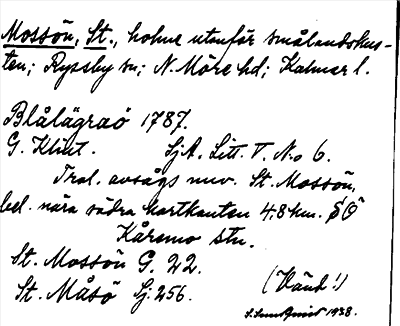 Mossön, St., holme utanför smålandskus-
ten; Ryssby sn; N. Möre hd; Kalmar l.
Blålägraö 1787.
G. Klint. Sj.A. Litt. V. N:o 6.
Trol. avsågs nuv. St. Mossön,
bel. nära södra kartkanten 4.8 km. SO
Kåremo stn.
St. Mossön G. 22.
St. Måsö Sj. 256.
(Vänd!)
1938.